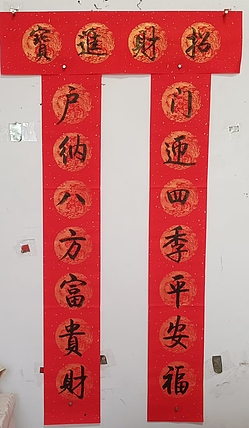 招財進寳
門迎四季平安福
户納八方富貴財